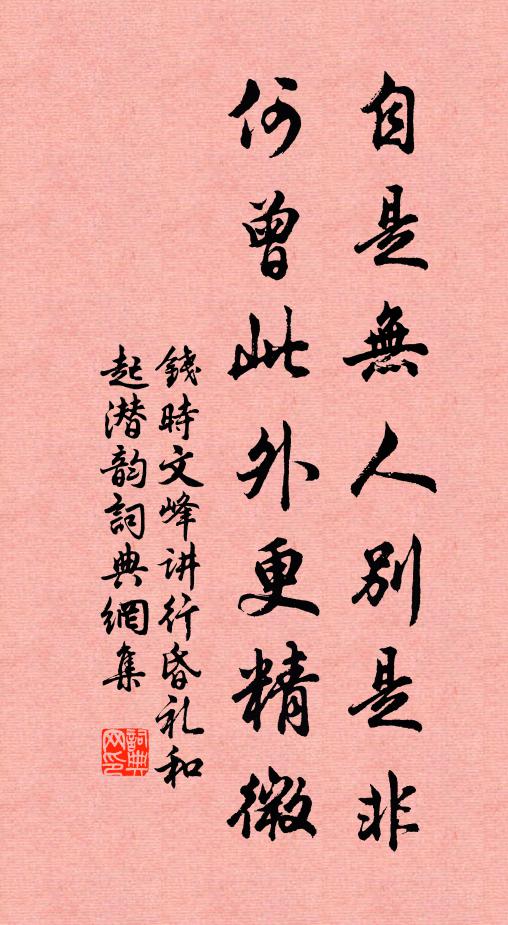 自是無人別是非
何曾此外更精微
錢時文峰讲行昏礼和
起潜韵詞典網集
詞典网印